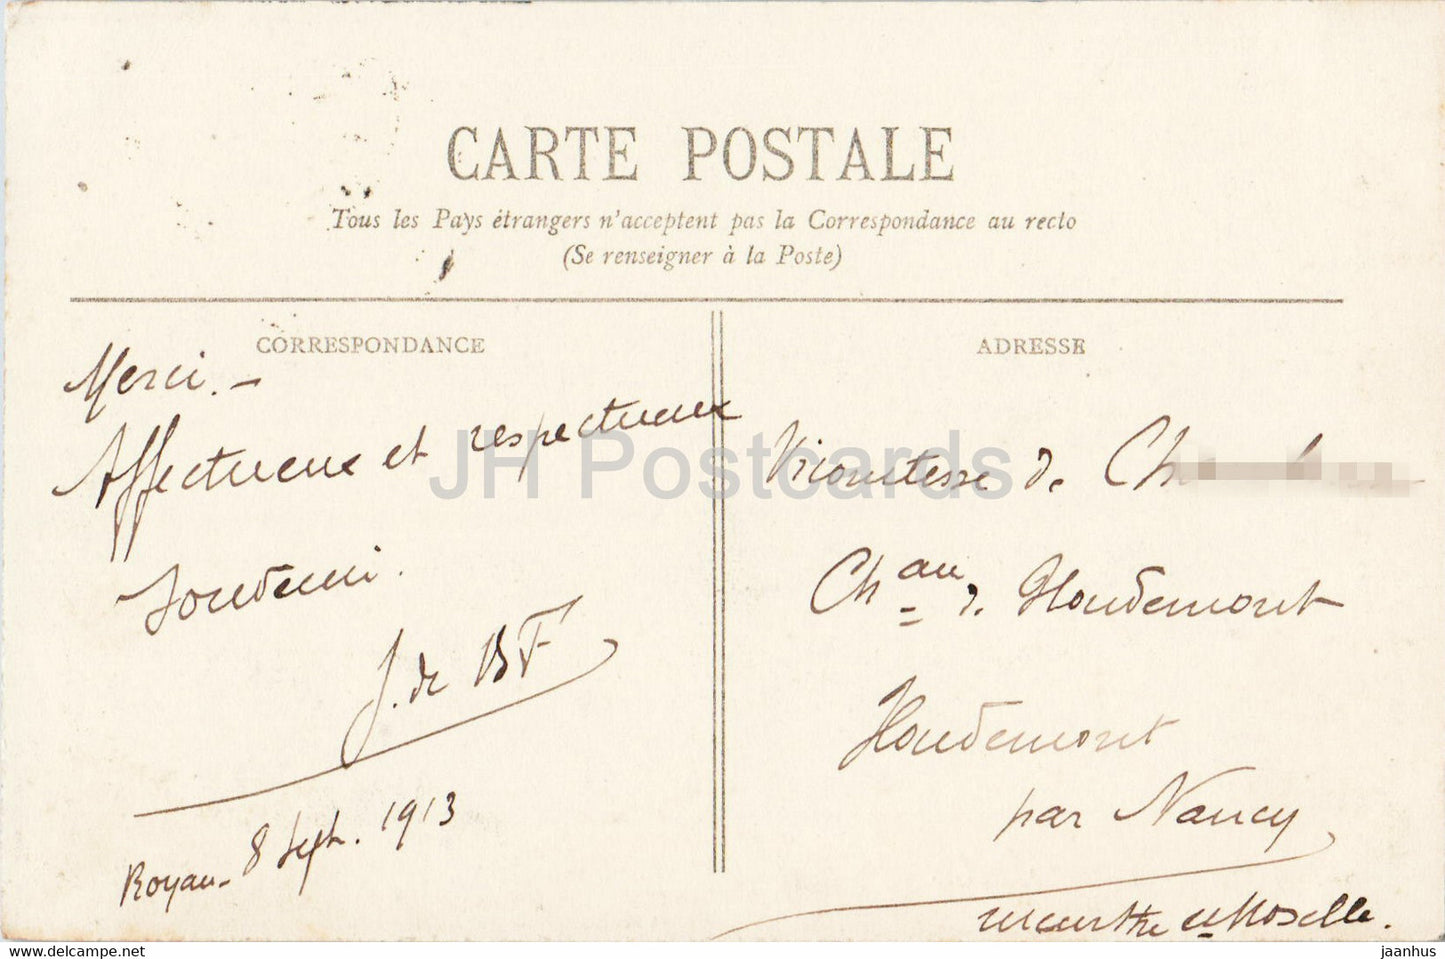 CARTE POSTALE
Tous les Pays étrangers n'acceptent pas la Correspondance au recto
(Se renseigner à la Poste)
CORRESPONDANCE
Merci. -
Affectueux et respectueux
souvenir.
J. de BF
Royan - 8 Sept. 1913
ADRESSE
Vicomtesse de
Chau de Houdemont
Houdemont
par Nancy
Meurthe et Moselle.
JH Postcards
https://www.delcampe.net
jaanhus